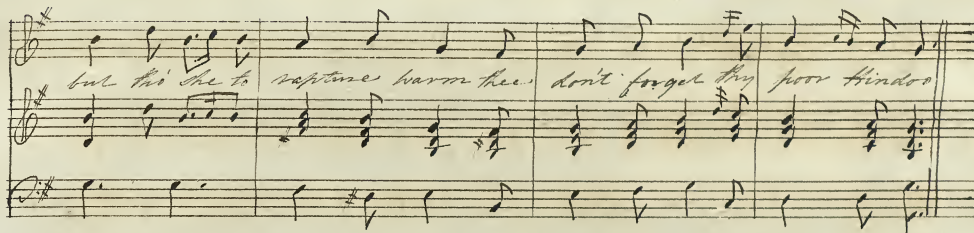 but tho' she to rapture warm thee don't forget thy poor Hindoo